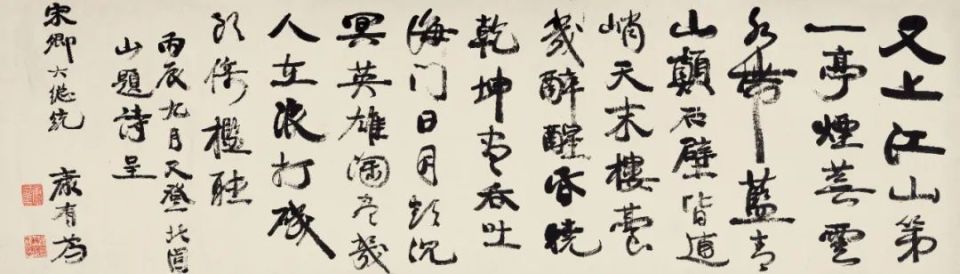 又上江山第
一亭煙蕪雲
水帶藍青
山顛石壁皆
峭天末樓臺
幾醉醒昏曉
乾坤吞吐
海门日月頻沉
冥英雄淘尽幾
人在浪打
倚檻聽
丙辰九月又登北固
山題詩呈
宋卿大總統 康有為